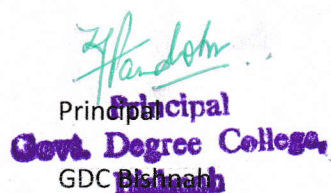 Principal
Principal
Govt. Degree College,
GDC Bishnah
Bishnah